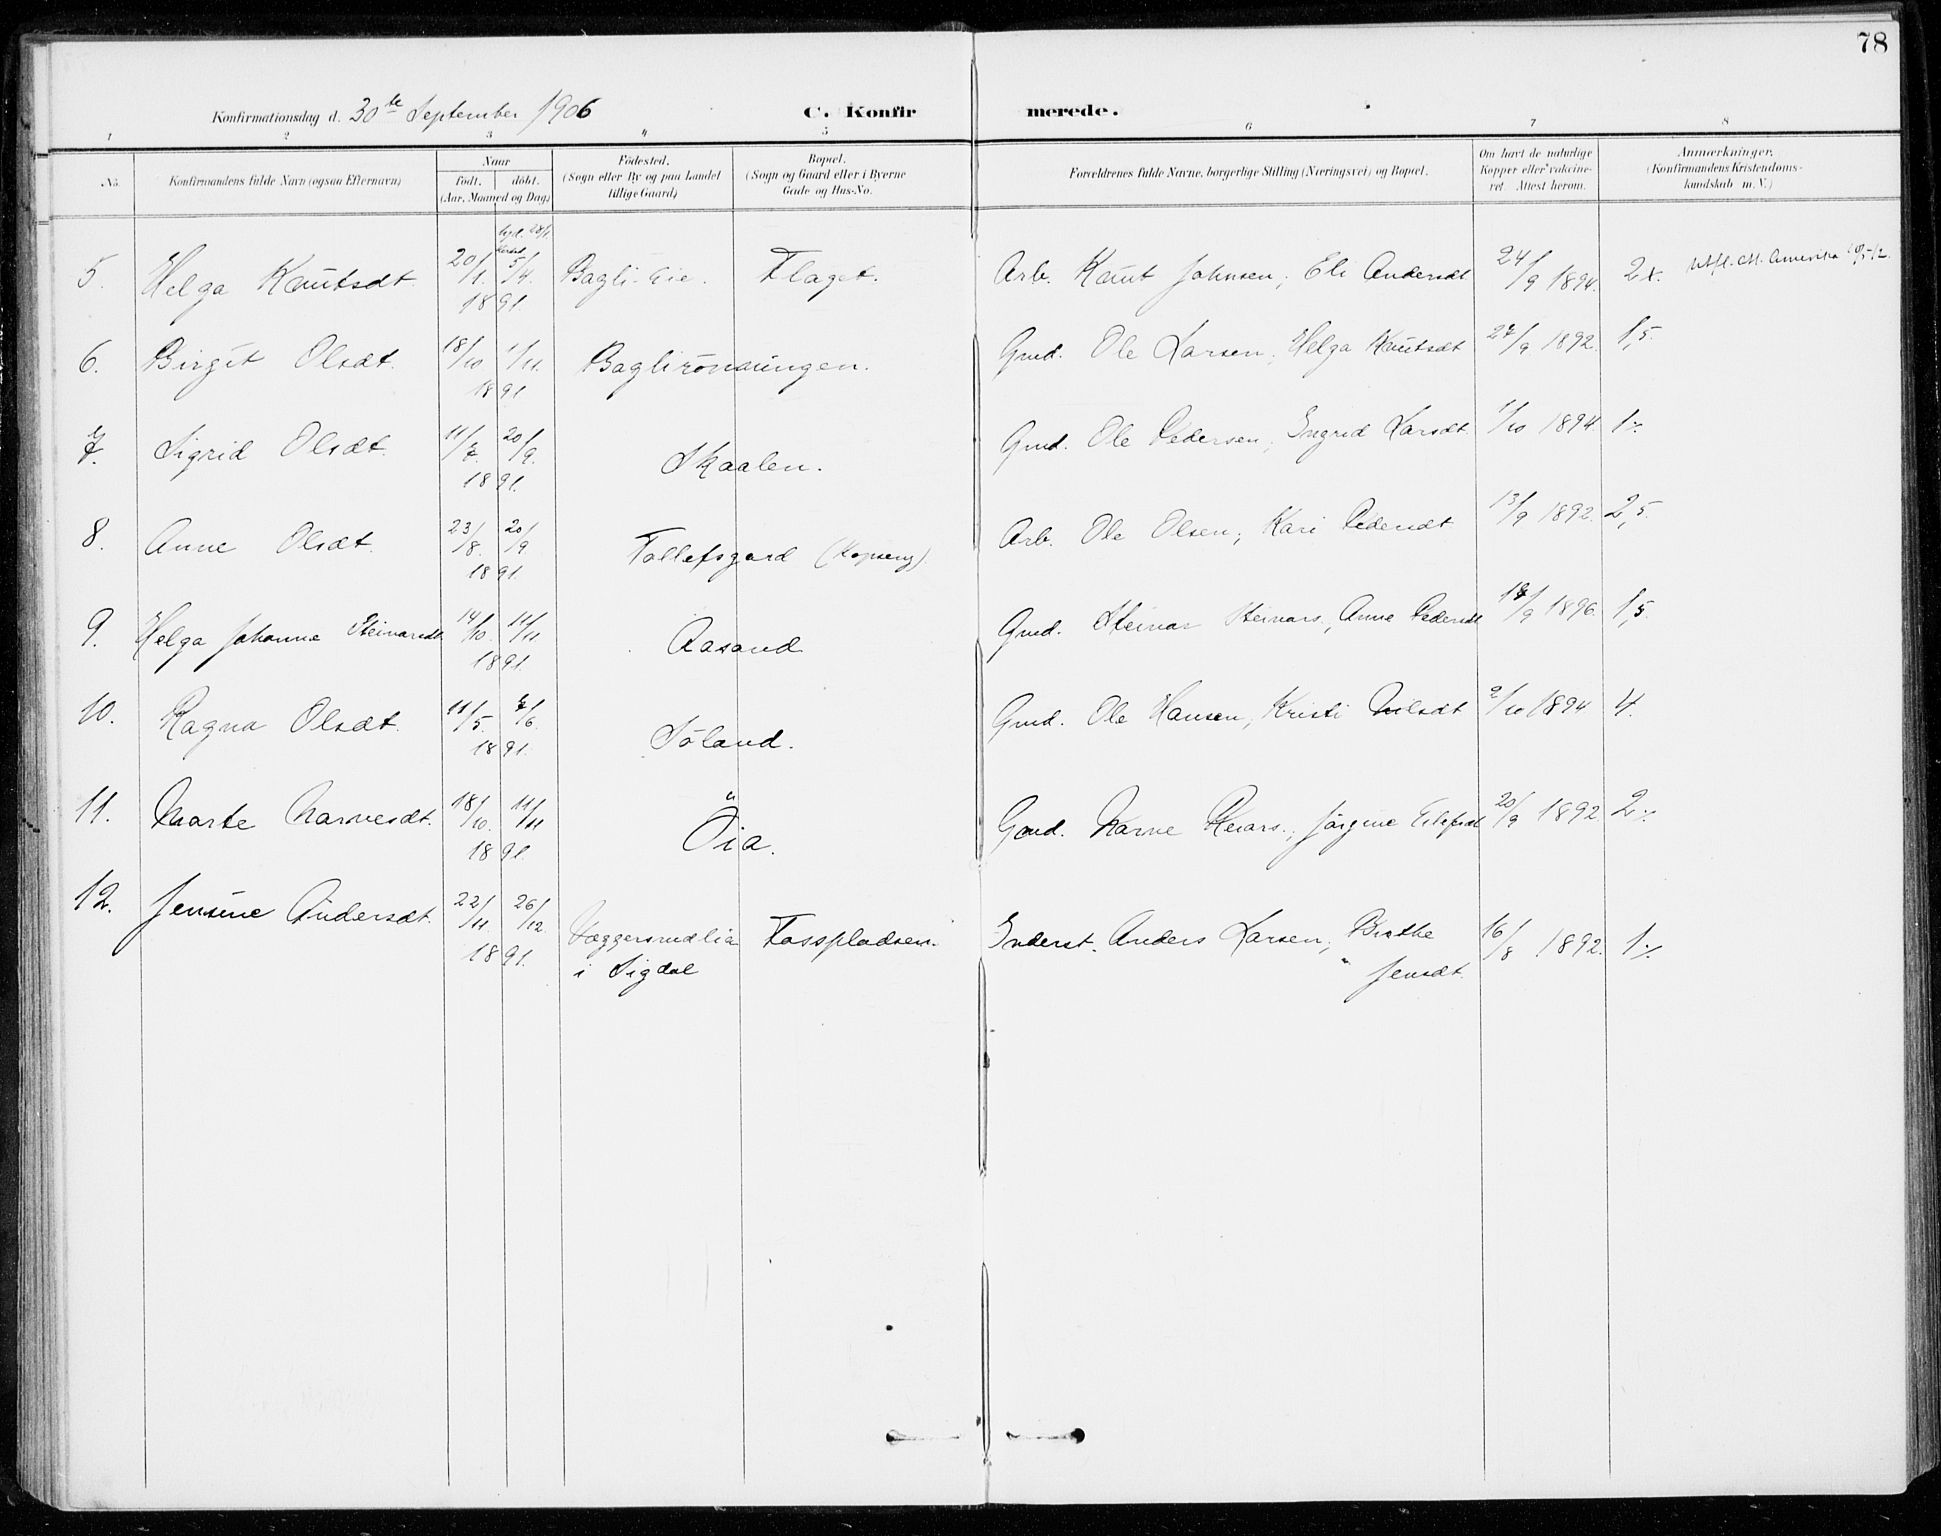 78
Konfirmationsdag d. 30te September 1906 C. Konfirmerede.
1 2 3 4 5 6 7 8
No. Konfirmandens fulde Navn (ogsaa Efternavn) Naar født. døbt. (Aar, Maaned og Dag) Fødested. (Sogn eller By og paa Landet tillige Gaard) Bopæl. (Sogn og Gaard eller i Byerne Gade og Hus-No. Forældrenes fulde Navne, borgerlige Stilling (Næringsvei) og Bopæl. Om havt de naturlige Kopper eller vakcineret. Attest herom. Anmærkninger. (Konfirmandens Kristendomskundskab m. V.)
5. Helga Knutsdt. 20/1. 5/4. 1891. Bagli-eie. Flaget. Arb. Knut Johnsen; Eli Andersdt 24/9 1894. 2x. Amerika
6. Birgit Olsdt. 18/10 1/11. 1891 Baglirönningen. Gmd. Ole Larsen, Helga Knutsdt 27/9 1892. 1,5.
7. Sigrid Olsdt. 11/7. 20/9. 1891. Skaalen. Gmd. Ole Pedersen, Ingrid Larsdt. 1/10 1894.
8. Anne Olsdt. 23/8. 20/9. 1891. Tollefsgard (Kopseng). Arb. Ole Olsen; Kari Pedersdt 13/9 1892. 2,5.
9. Helga Johanne Steinarsdt. 14/10. 11/11 1891. Aasand Gmd. Steinar Steinars., Anne Pedersdt 17/9 1896. 1,5.
10. Ragna Olsdt. 11/5. 7/6. 1891. Söland. Gmd. Ole Hansen, Kristi Nilsdt 2/10 1894 4.
11. Marte Narvesdt. 18/10. 11/11 1891. Öia. Gmd. Narve Reiars., Jörgine Tilefsdt 20/9 1892.
12. Jensine Andersdt. 22/11. 26/12. 1891. Væggersrudlia Fosspladsen. Inderst. Anders Larsen, Birthe 16/8 1892.
i Sigdal Jensdt.